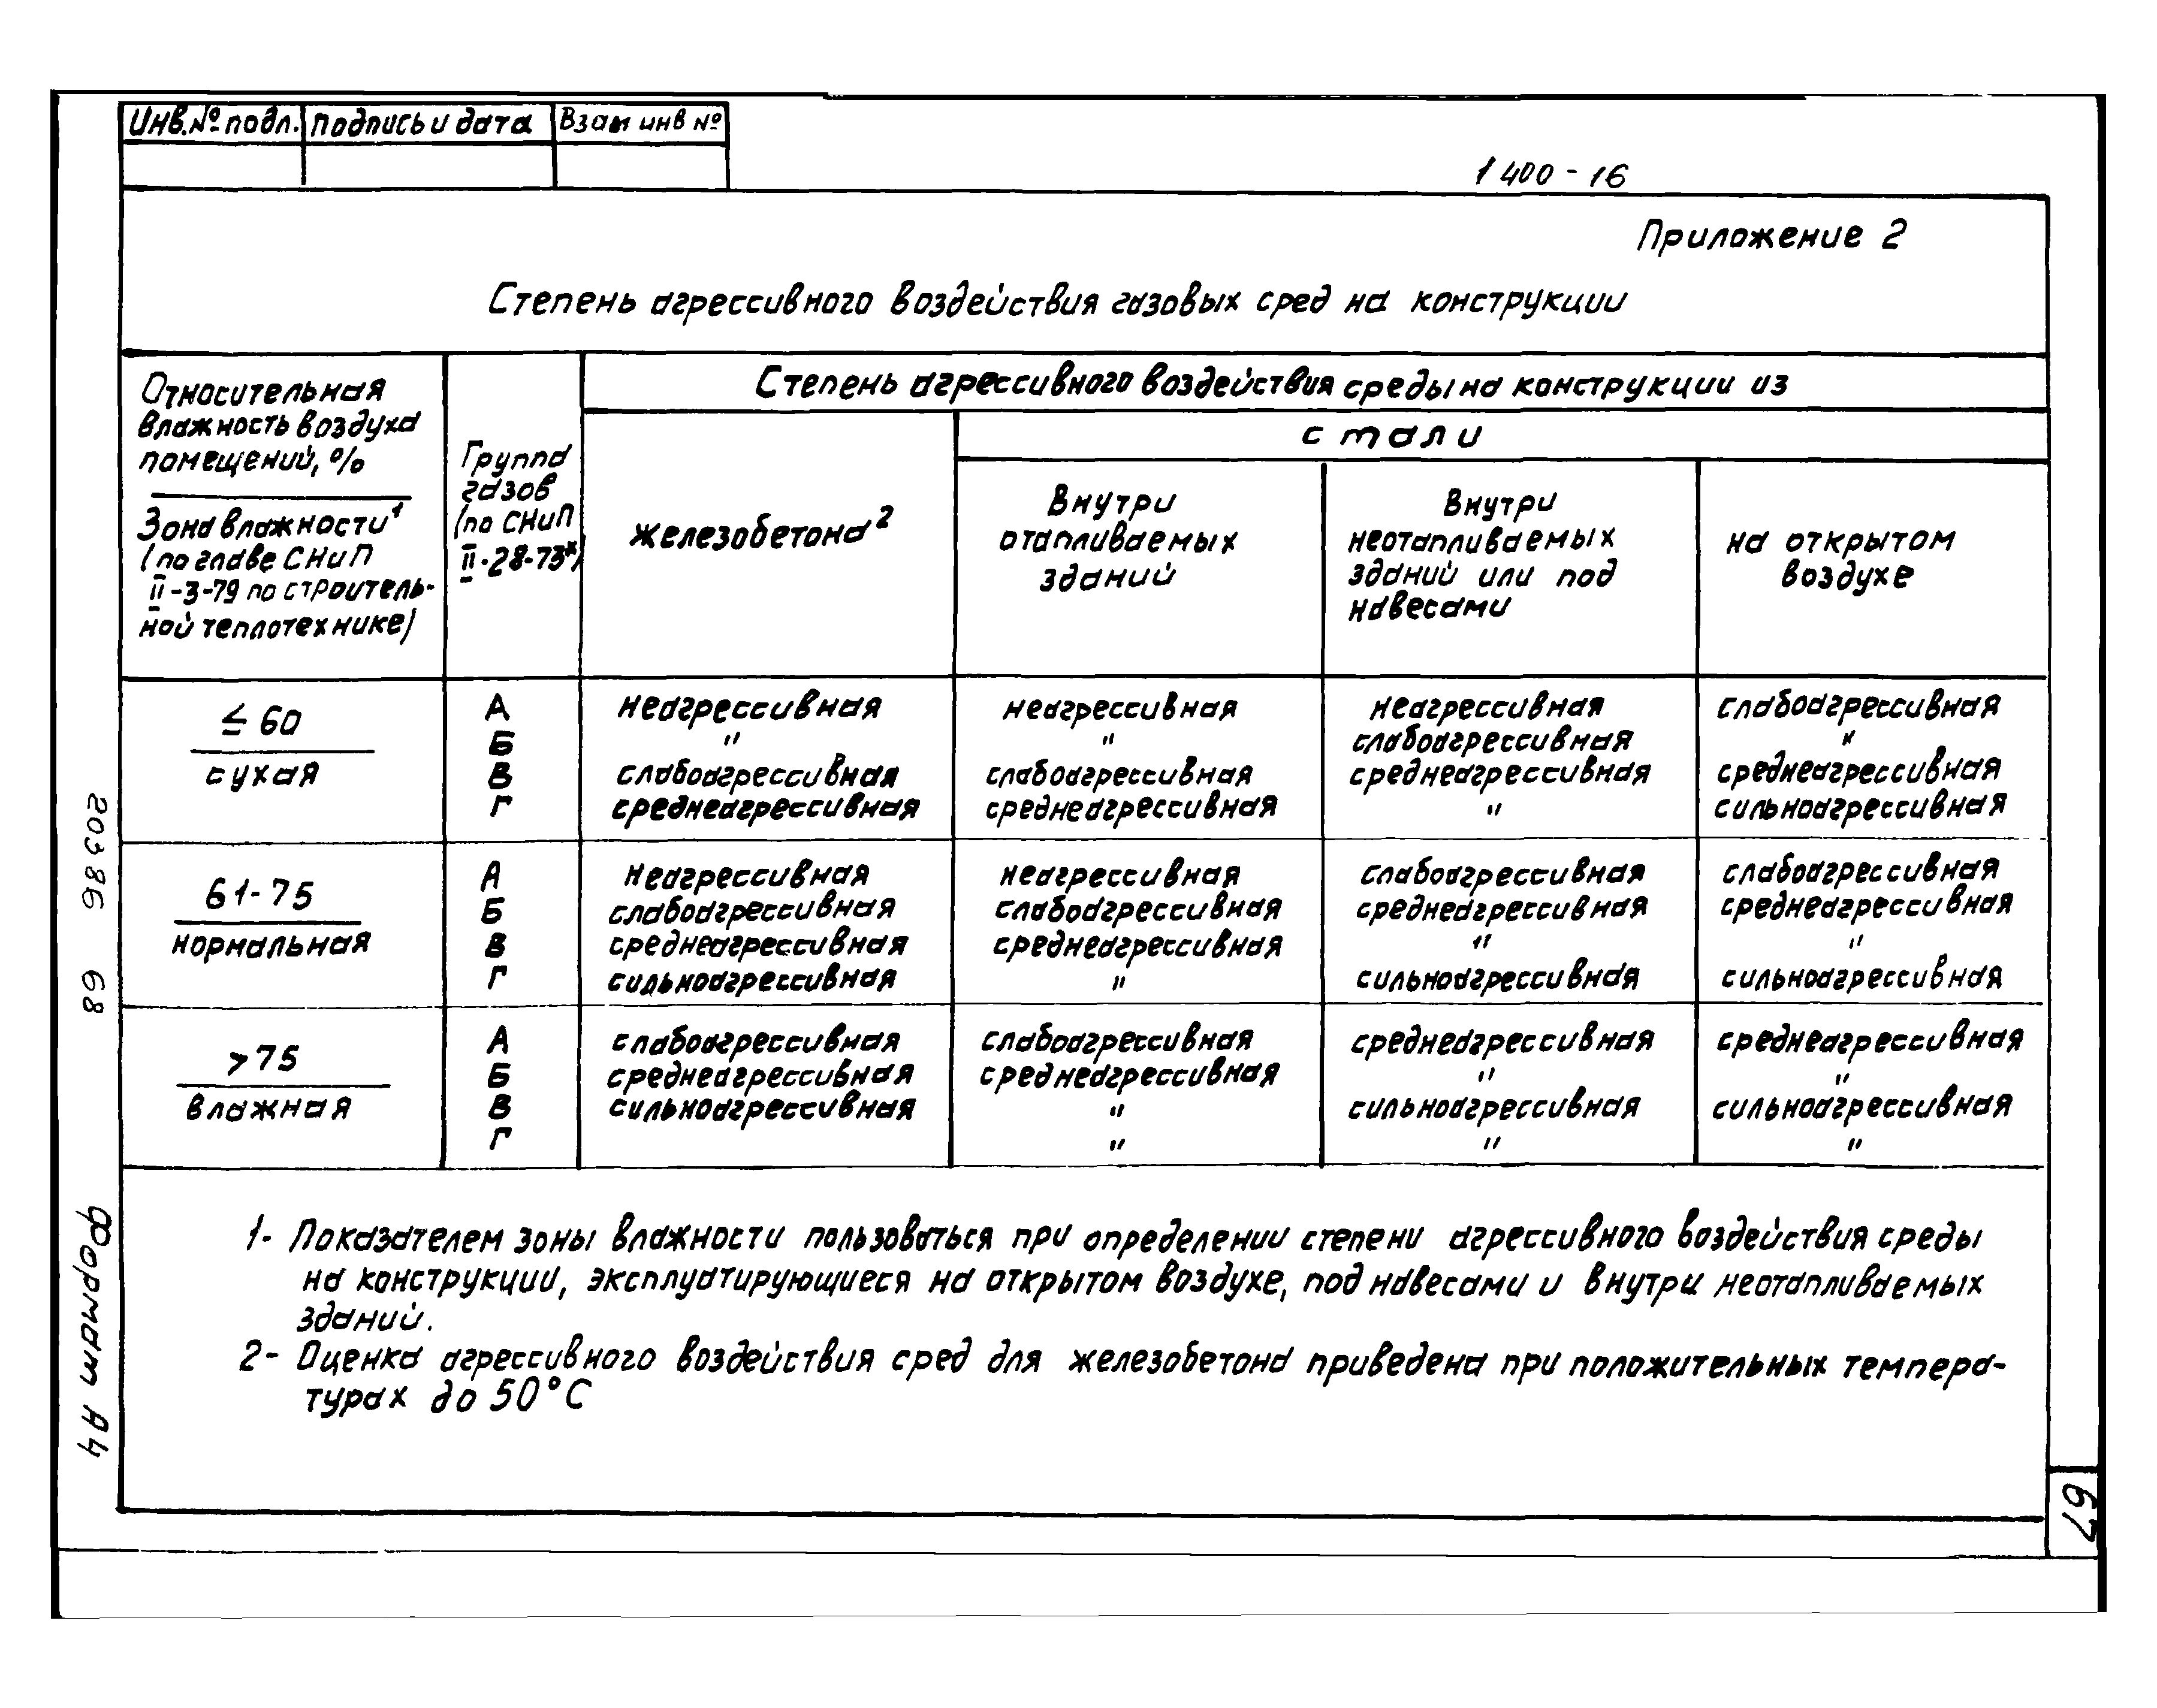 Инв.№ подл. Подпись и дата Взам инв №
1400-16
Приложение 2
Степень агрессивного воздействия газовых сред на конструкции
Относительная
влажность воздуха
помещений, %
Зона влажности¹
(по главе СНиП
II-3-79 по строитель-
ной теплотехнике)
Группа
газов
(по СНиП
II-28-73*)
Степень агрессивного воздействия среды на конструкции из
железобетона²
стали
Внутри
отапливаемых
зданий
Внутри
неотапливаемых
зданий или под
навесами
на открытом
воздухе
≤ 60
сухая
А неагрессивная неагрессивная неагрессивная слабоагрессивная
Б " " слабоагрессивная "
В слабоагрессивная слабоагрессивная среднеагрессивная среднеагрессивная
Г среднеагрессивная среднеагрессивная " сильноагрессивная
61-75
нормальная
А неагрессивная неагрессивная слабоагрессивная слабоагрессивная
Б слабоагрессивная слабоагрессивная среднеагрессивная среднеагрессивная
В среднеагрессивная среднеагрессивная " "
Г сильноагрессивная " сильноагрессивная сильноагрессивная
>75
влажная
А слабоагрессивная слабоагрессивная среднеагрессивная среднеагрессивная
Б среднеагрессивная среднеагрессивная " "
В сильноагрессивная " сильноагрессивная сильноагрессивная
Г " " "
1- Показателем зоны влажности пользоваться при определении степени агрессивного воздействия среды
на конструкции, эксплуатирующиеся на открытом воздухе, под навесами и внутри неотапливаемых
зданий.
2- Оценка агрессивного воздействия сред для железобетона приведена при положительных темпера-
турах до 50°С
20386 68
Формат А4
67